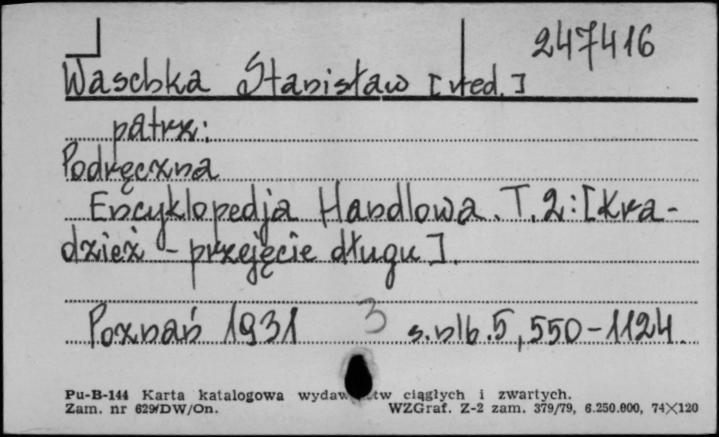 247416
Waschka Stanisław [red.]
patrz:
Podręczna
Encyklopedja Handlowa. T. 2: [Kra-
dzież - przejęcie długu].
Poznań 1931 3 s. nlb. 5, 550-1124.
Pu-B-144 Karta katalogowa ciągłych i zwartych.
Zam. nr 629/DW/On. WZGraf. Z-2 zam. 379/79, 6.250.000, 74×120